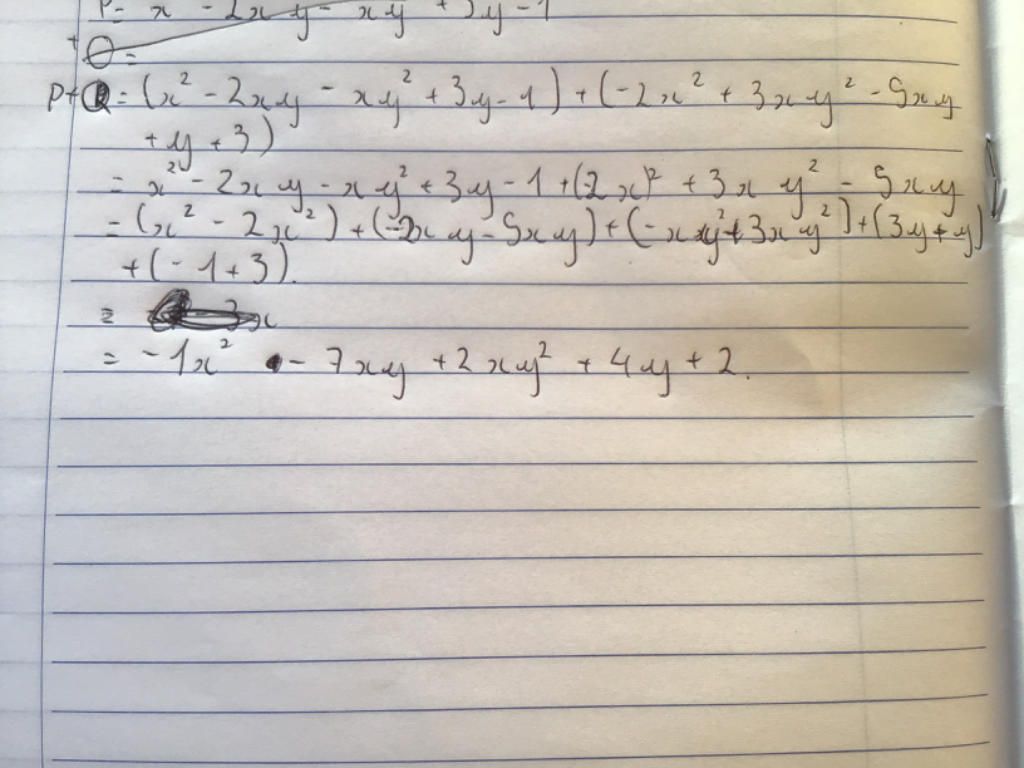 P = x² - 2xy - xy² + 3y - 1
+ Q =
P+Q = (x² - 2xy - xy² + 3y - 1) + (-2x² + 3xy² - 5xy
+ y + 3)
= x² - 2xy - xy² + 3y - 1 + (-2x)² + 3xy² - 5xy
= (x² - 2x²) + (-2xy - 5xy) + (-xy² + 3xy²) + (3y + y)
+ (-1 + 3).
=
= -1x² - 7xy + 2xy² + 4y + 2.